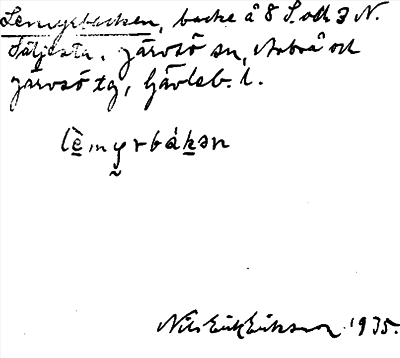 Lemyrbacken, backe å 8 S. och 3 N.
Säljesta, Järvsö sn, Arbrå och
Järvsö tg, Gävleb. l.
lè̱my̰rbák̠ən
Nils Erik Eriksson 1935.